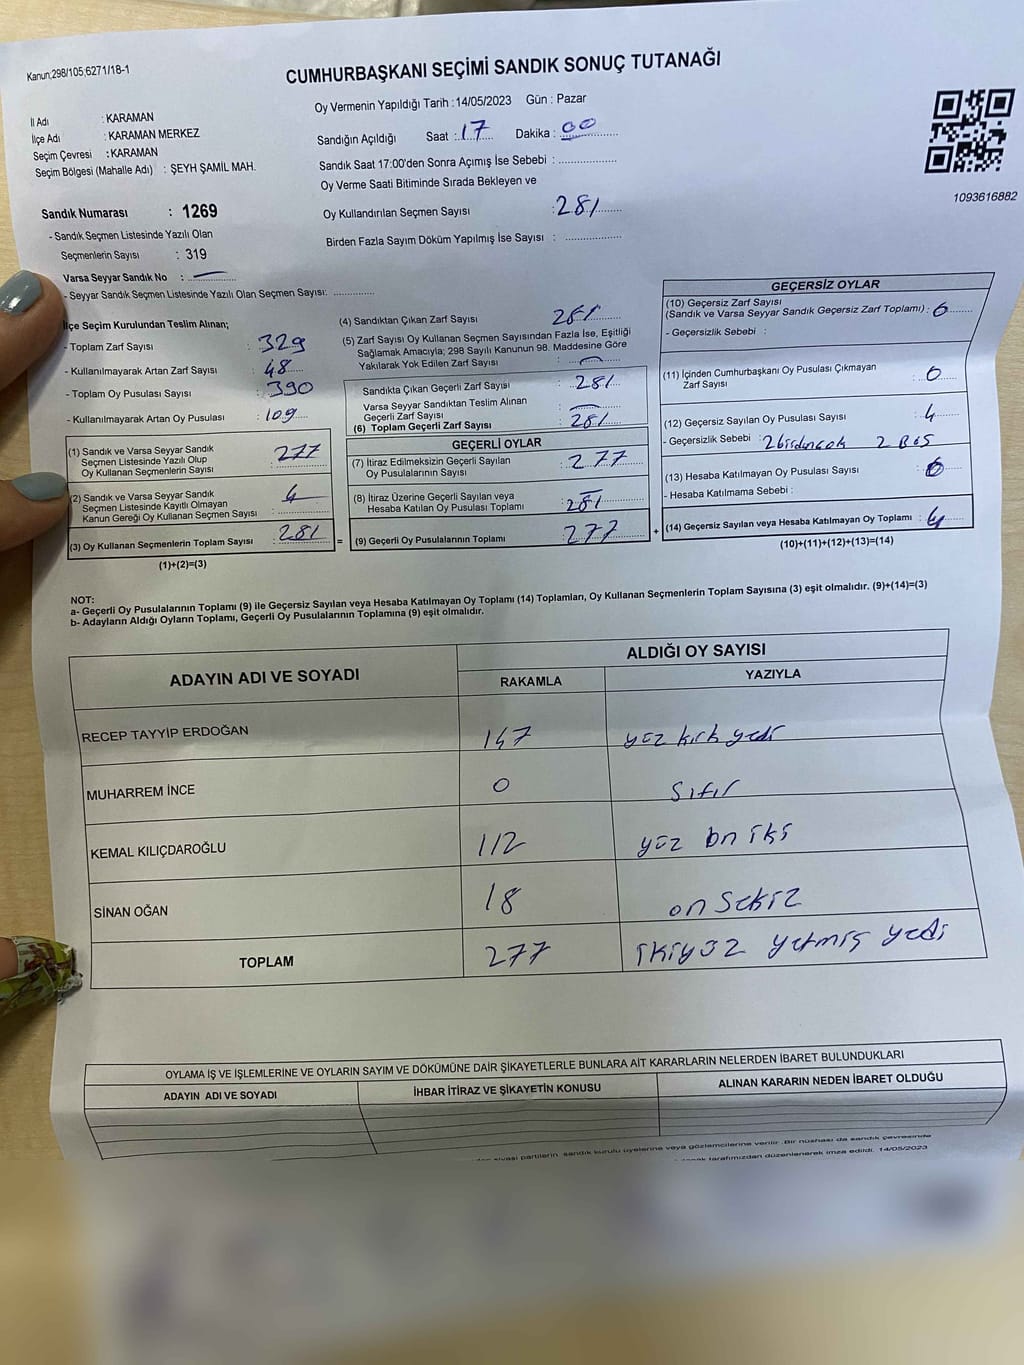 Kanun;298/105;6271/18-1
CUMHURBAŞKANI SEÇİMİ SANDIK SONUÇ TUTANAĞI
Oy Vermenin Yapıldığı Tarih : 14/05/2023 Gün : Pazar
İl Adı : KARAMAN
İlçe Adı : KARAMAN MERKEZ
Seçim Çevresi : KARAMAN
Seçim Bölgesi (Mahalle Adı) : ŞEYH ŞAMİL MAH.
Sandığın Açıldığı Saat : 17 Dakika : 00
Sandık Saat 17:00'den Sonra Açımış İse Sebebi :
Oy Verme Saati Bitiminde Sırada Bekleyen ve
Oy Kullandırılan Seçmen Sayısı : 281
Birden Fazla Sayım Döküm Yapılmış İse Sayısı :
1093616882
Sandık Numarası : 1269
- Sandık Seçmen Listesinde Yazılı Olan
Seçmenlerin Sayısı : 319
Varsa Seyyar Sandık No : —
- Seyyar Sandık Seçmen Listesinde Yazılı Olan Seçmen Sayısı:
İlçe Seçim Kurulundan Teslim Alınan;
- Toplam Zarf Sayısı : 329
- Kullanılmayarak Artan Zarf Sayısı : 48
- Toplam Oy Pusulası Sayısı : 390
- Kullanılmayarak Artan Oy Pusulası : 109
(1) Sandık ve Varsa Seyyar Sandık
Seçmen Listesinde Yazılı Olup
Oy Kullanan Seçmenlerin Sayısı : 277
(2) Sandık ve Varsa Seyyar Sandık
Seçmen Listesinde Kayıtlı Olmayan
Kanun Gereği Oy Kullanan Seçmen Sayısı : 4
(3) Oy Kullanan Seçmenlerin Toplam Sayısı : 281 =
(1)+(2)=(3)
(4) Sandıktan Çıkan Zarf Sayısı 281
(5) Zarf Sayısı Oy Kullanan Seçmen Sayısından Fazla İse, Eşitliği
Sağlamak Amacıyla; 298 Sayılı Kanunun 98. Maddesine Göre
Yakılarak Yok Edilen Zarf Sayısı : —
Sandıkta Çıkan Geçerli Zarf Sayısı : 281
Varsa Seyyar Sandıktan Teslim Alınan
Geçerli Zarf Sayısı : —
(6) Toplam Geçerli Zarf Sayısı : 281
GEÇERLİ OYLAR
(7) İtiraz Edilmeksizin Geçerli Sayılan
Oy Pusulalarının Sayısı : 277
(8) İtiraz Üzerine Geçerli Sayılan veya
Hesaba Katılan Oy Pusulası Toplamı : 281
(9) Geçerli Oy Pusulalarının Toplamı : 277 +
GEÇERSİZ OYLAR
(10) Geçersiz Zarf Sayısı
(Sandık ve Varsa Seyyar Sandık Geçersiz Zarf Toplamı) : 0
- Geçersizlik Sebebi :
(11) İçinden Cumhurbaşkanı Oy Pusulası Çıkmayan
Zarf Sayısı : 0
(12) Geçersiz Sayılan Oy Pusulası Sayısı : 4
- Geçersizlik Sebebi : 2 birdencok 2 BOŞ
(13) Hesaba Katılmayan Oy Pusulası Sayısı : 0
- Hesaba Katılmama Sebebi :
(14) Geçersiz Sayılan veya Hesaba Katılmayan Oy Toplamı : 4
(10)+(11)+(12)+(13)=(14)
NOT:
a- Geçerli Oy Pusulalarının Toplamı (9) ile Geçersiz Sayılan veya Hesaba Katılmayan Oy Toplamı (14) Toplamları, Oy Kullanan Seçmenlerin Toplam Sayısına (3) eşit olmalıdır. (9)+(14)=(3)
b- Adayların Aldığı Oyların Toplamı, Geçerli Oy Pusulalarının Toplamına (9) eşit olmalıdır.
ADAYIN ADI VE SOYADI ALDIĞI OY SAYISI
RAKAMLA YAZIYLA
RECEP TAYYİP ERDOĞAN 147 yüz kırk yedi
MUHARREM İNCE 0 sıfır
KEMAL KILIÇDAROĞLU 112 yüz on iki
SİNAN OĞAN 18 on sekiz
TOPLAM 277 ikiyüz yetmiş yedi
OYLAMA İŞ VE İŞLEMLERİNE VE OYLARIN SAYIM VE DÖKÜMÜNE DAİR ŞİKAYETLERLE BUNLARA AİT KARARLARIN NELERDEN İBARET BULUNDUKLARI
ADAYIN ADI VE SOYADI İHBAR İTİRAZ VE ŞİKAYETİN KONUSU ALINAN KARARIN NEDEN İBARET OLDUĞU
siyasi partilerin sandık kurulu üyelerine veya gözlemcilerine verilir. Bir nüshası da sandık çevresinde
tarafımızdan düzenlenerek imza edildi. 14/05/2023